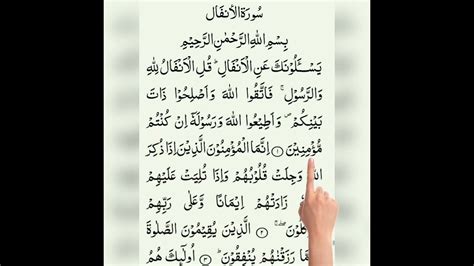 سُورَةُ الْاَنْفَال
بِسْمِ اللّٰهِ الرَّحْمٰنِ الرَّحِيْمِ
يَسْـَٔلُوْنَكَ عَنِ الْاَنْفَالِ ؕ قُلِ الْاَنْفَالُ لِلّٰهِ
وَالرَّسُوْلِ ۚ فَاتَّقُوا اللّٰهَ وَاَصْلِحُوْا ذَاتَ
بَيْنِكُمْ ۪ وَاَطِيْعُوا اللّٰهَ وَرَسُوْلَهٗۤ اِنْ كُنْتُمْ
مُّؤْمِنِيْنَ ﴿۱﴾ اِنَّمَا الْمُؤْمِنُوْنَ الَّذِيْنَ اِذَا ذُكِرَ
اللّٰهُ وَجِلَتْ قُلُوْبُهُمْ وَاِذَا تُلِيَتْ عَلَيْهِمْ
زَادَتْهُمْ اِيْمَانًا وَّعَلٰى رَبِّهِمْ
كَّلُوْنَ ﴿۲﴾ الَّذِيْنَ يُقِيْمُوْنَ الصَّلٰوةَ
مَّا رَزَقْنٰهُمْ يُنْفِقُوْنَ ﴿۳﴾ اُولٰٓئِكَ هُمُ